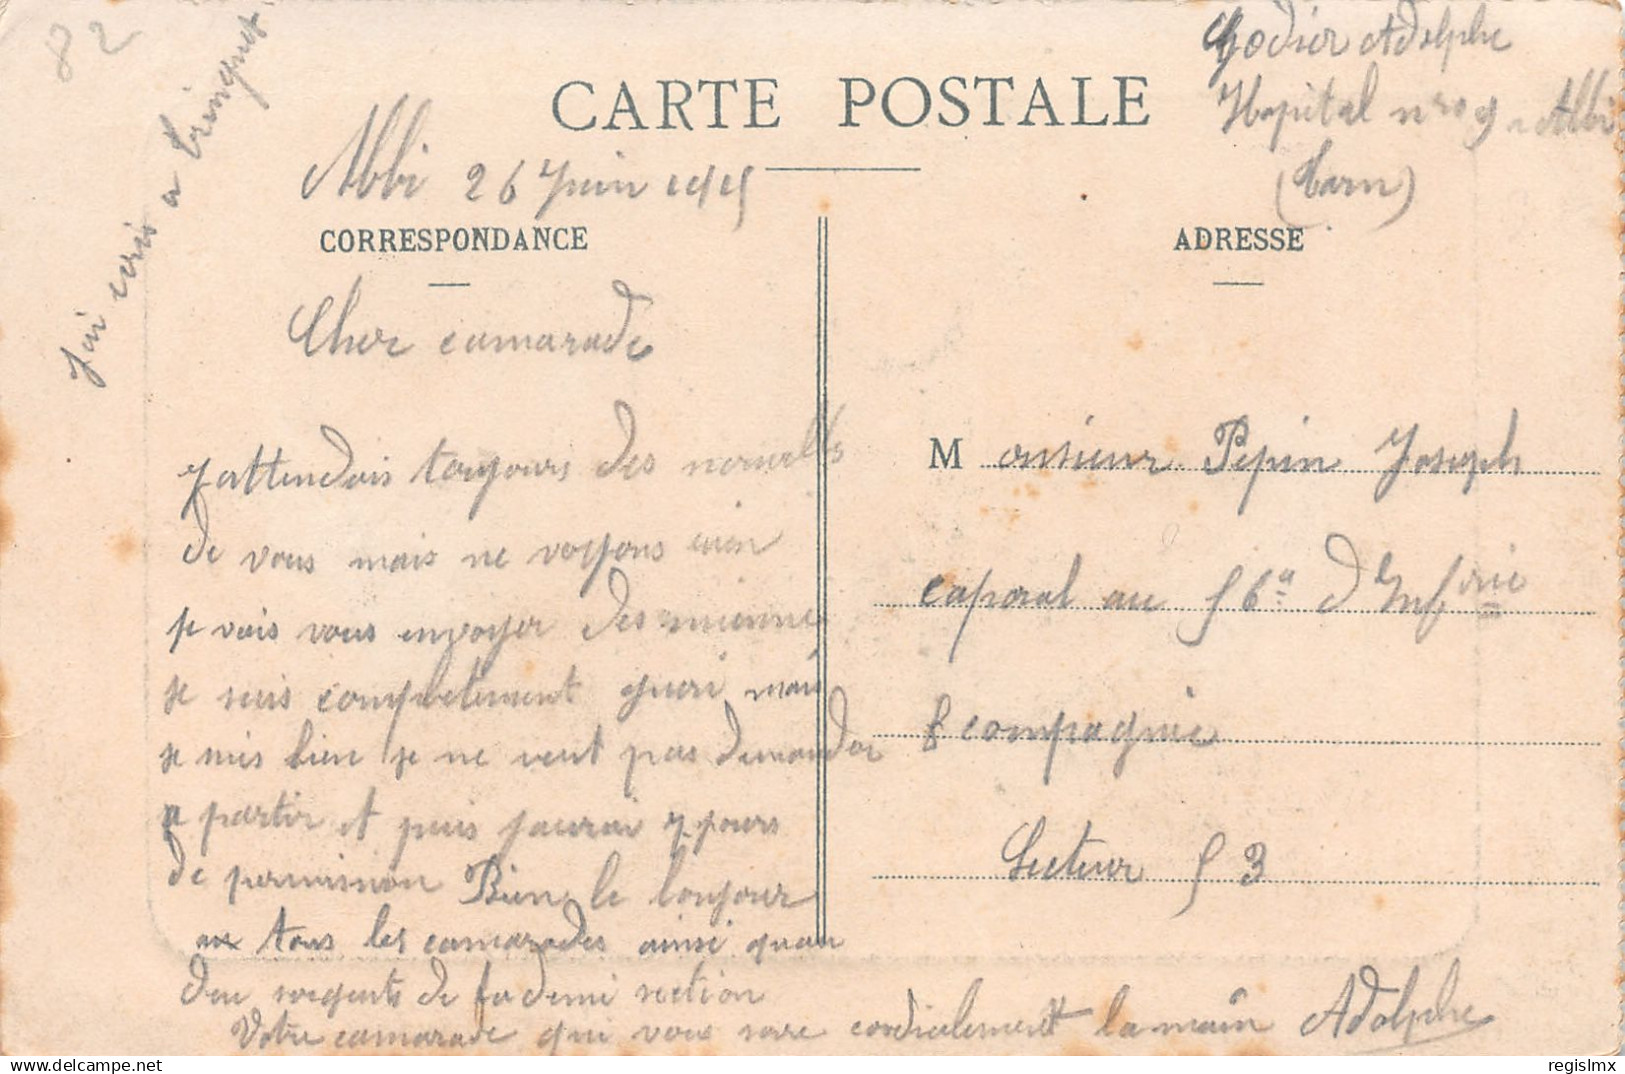 82
J'ai ecris a Trinquet
Godier Adolphe
Hopital nro 9 Albi
(Tarn)
CARTE POSTALE
Albi 26 Juin 1915
CORRESPONDANCE
ADRESSE
Cher camarade
J attendais toujours des nouvelles
de vous mais ne voyons rien
je vais vous envoyer des mienne
je suis completement gueri mais
je suis bien je ne veut pas demander
a partir et puis jaurai 7 jours
de permission Bien le bonjour
a tous les camarades ainsi quau
deu sergents de la demi section
Votre camarade qui vous sare cordialement la main Adolphe
Monsieur Pepin Joseph
caporal au 56e d'Infrie
8 compagnie
Secteur 53
regislmx